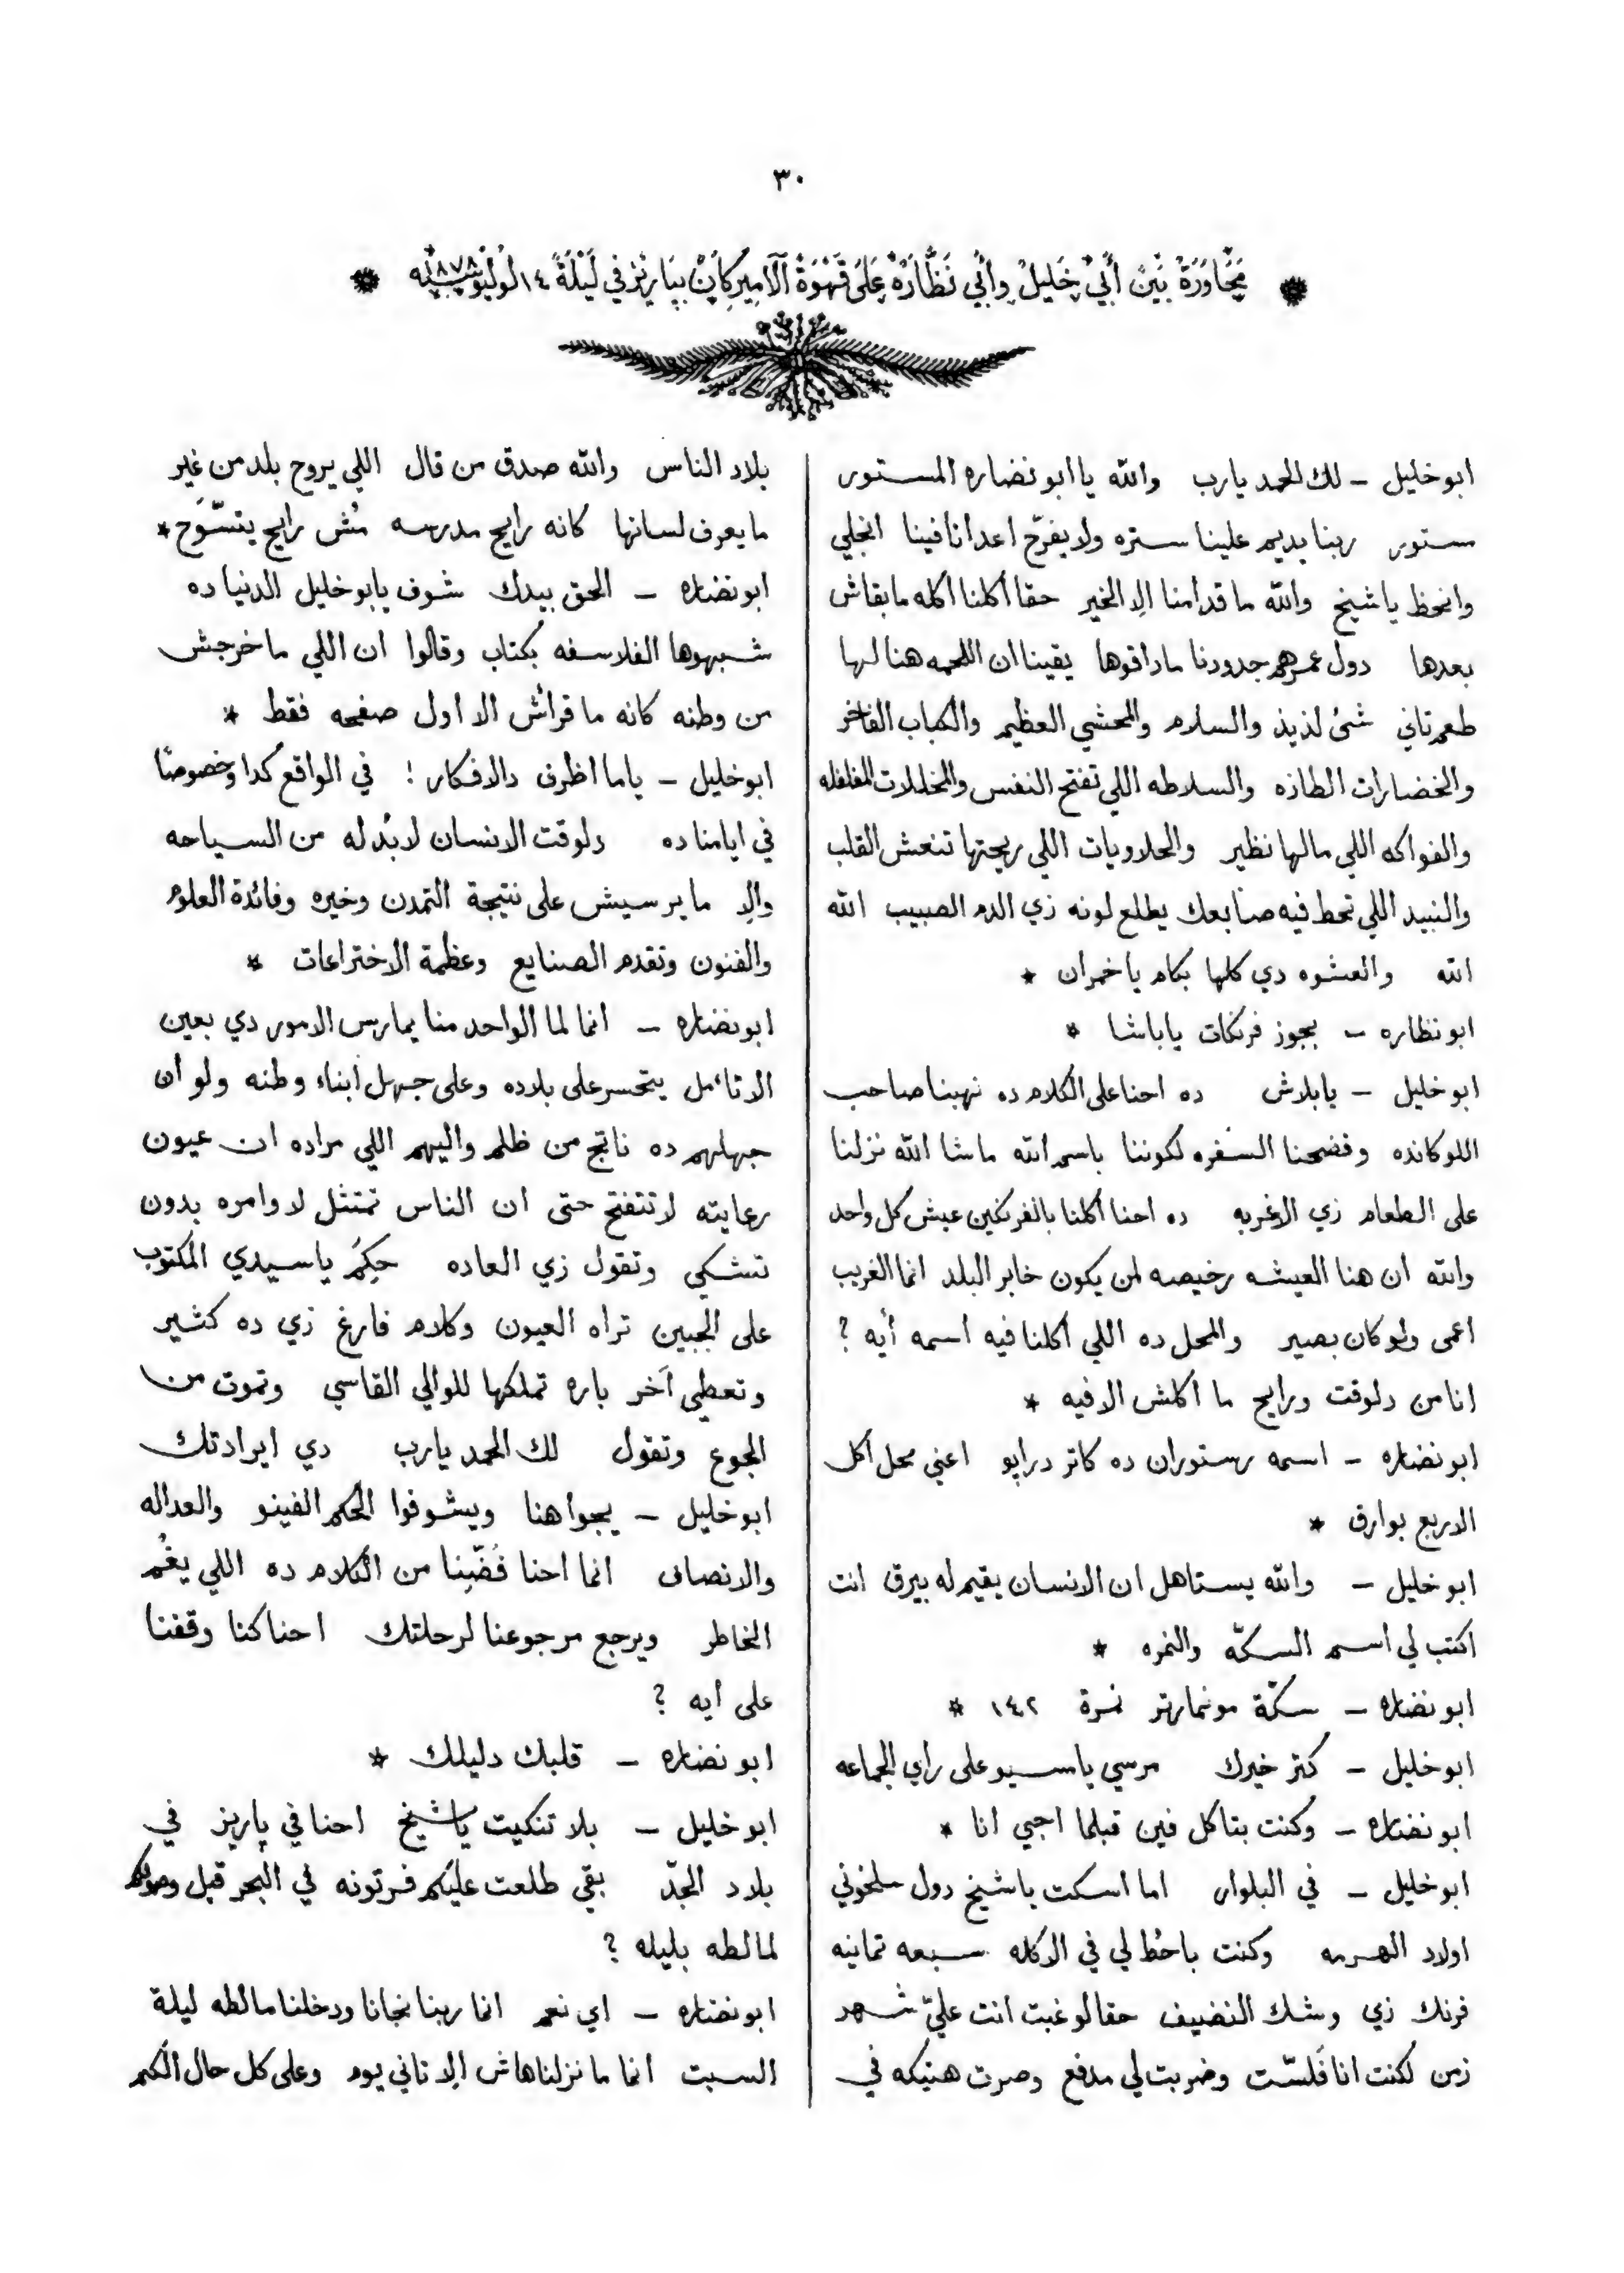 ٣٠
* مُحَاوَرَةْ بَيْنْ أَبِي خَلِيلْ وِأَبِي نَظَّارَهْ عَلَى قَهْوَةْ اَلْاَمِيرِكَانْ بِبَارِيزْ فِي لَيْلَةْ ١٤ لُولْيُو سَنَة ١٨٧٨ *
ابوخليل – لك الحمد يارب والله يا ابو نضاره المستور
ستور ربنا يديم علينا ستره ولا يفرّح اعدانا فينا انجلي
وانحظ يا شيخ والله ما قدامنا الا الخير حقا اكلنا اكله ما بقاش
بعدها دول عمرهم جدودنا ماداقوها يقينا ان اللحمه هنا لها
طعم تاني شئ لذيذ والسلام والمحشي العظيم والكباب الفاخر
والخضارات الطازه والسلاطه اللي تفتح النفس والمخللات المفلفله
والفواكه اللي مالها نظير والحلاويات اللي ريحتها تنعش القلب
والنبيد اللي تحط فيه صابعك يطلع لونه زي الدم الصبيب الله
الله والعشوه دي كلها بكام يا خمران *
ابو نظاره – بجوز فرنكات يا باشا *
ابوخليل – يا بلاش ده احنا على الكلام ده نهبنا صاحب
اللوكانده وفضحنا السفره لكوننا باسم الله ماشا الله نزلنا
على الطعام زي الاغربه ده احنا اكلنا بالفرنكين عيش كل واحد
والله ان هنا العيشه رخيصه لمن يكون خابر البلد انما الغريب
اعمى ولو كان بصير والمحل ده اللي اكلنا فيه اسمه أيه ؟
انا من دلوقت ورايح ما اكلش الا فيه *
ابو نضاره – اسمه رستوران ده كاتر درابو اعني محل اكل
الاربع بوارق *
ابوخليل – والله يستاهل ان الانسان يقيم له بيرق انت
اكتب لي اسم السكّه والنمره *
ابو نضاره – سكّة مونمارتر نمرة ١٤٢ *
ابوخليل – كتر خيرك مرسي يا مسيو على راي الجماعه
ابو نضاره – وكنت بتاكل فين قبلما اجي انا *
ابوخليل – في البلوار اما اسكت يا شيخ دول سلخوني
اولاد الهرمه وكنت باحُط لي في الاكله سبعه تمانيه
فرنك زي وشك النضيف حقا لو غبت انت عليّ شهر
زمن لكنت انا فَلسّت وضربت لي مدفع وصرت هتيكه في
بلاد الناس والله صدق من قال اللي يروح بلد من غير
ما يعرف لسانها كانه رايح مدرسه مُش رايح يتسّوَح *
ابو نضاره – الحق بيدك شوف يابو خليل الدنيا ده
شبهوها الفلاسفه بكتاب وقالوا ان اللي ما خرجش
من وطنه كانه ما قراش الا اول صفحه فقط *
ابوخليل – ياما اظرف دالافكار ! في الواقع كدا وخصوصًا
في ايامنا ده دلوقت الانسان لابُد له من السياحه
والا ما يرسيش على نتيجة التمدن وخيره وفائدة العلوم
والفنون وتقدم الصنايع وعظمة الاختراعات *
ابو نضاره – انما لما الواحد منا يمارس الامور دي بعين
التامل يتحسر على بلاده وعلى جهل أبناء وطنه ولو أن
جهلهم ده ناتج من ظلم واليهم اللي مراده ان عيون
رعايته لا تتفتح حتى ان الناس تمتثل لاوامره بدون
تشكي وتقول زي العاده حِكِمَ يا سيدي المكتوب
على الجبين تراه العيون وكلام فارغ زي ده كثير
وتعطي آخر باره تملكها للوالي القاسي وتموت من
الجوع وتقول لك الحمد يارب دي ايرادتك
ابوخليل – يجوا هنا ويشوفوا الحكم الفينو والعداله
والانصاف انما احنا فُضّينا من الكلام ده اللي يغُم
الخاطر ويرجع مرجوعنا لرحلتك احنا كنا وقفنا
على أيه ؟
ابو نضاره – قلبك دليلك *
ابوخليل – بلا تنكيت يا شيخ احنا في باريز في
بلاد الجدّ بقي طلعت عليكم فرتونه في البحر قبل وصولكم
لمالطه بليله ؟
ابو نضاره – اي نعم انما ربنا نجانا ودخلنا مالطه ليلة
السبت انما ما نزلناهاش الا تاني يوم وعلى كل حال الكم